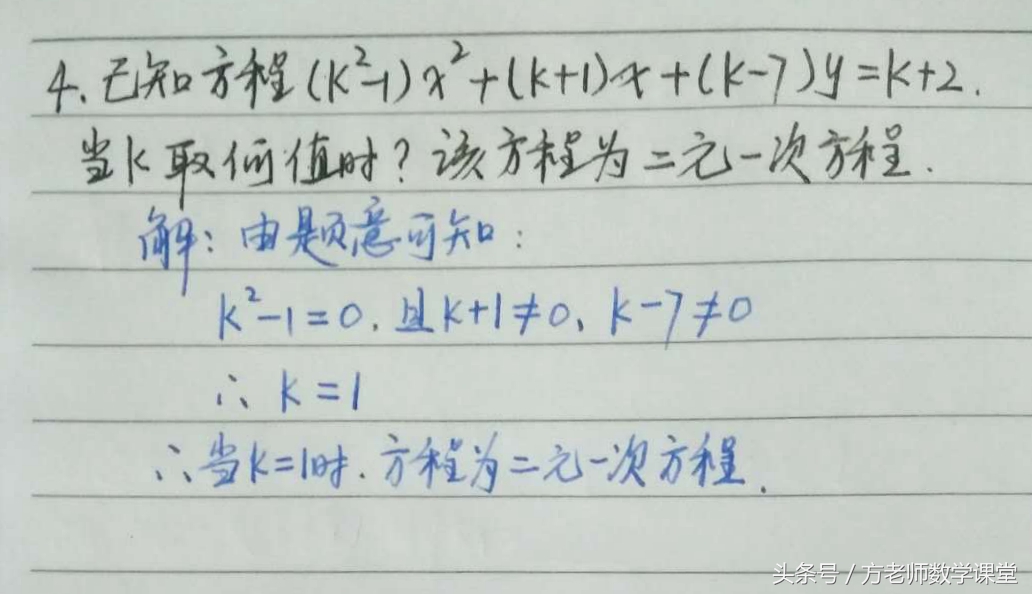 4. 已知方程(k²-1)x²+(k+1)x+(k-7)y=k+2.
当k取何值时?该方程为二元一次方程.
解:由题意可知:
k²-1=0.且k+1≠0、k-7≠0
∴ k=1
∴当k=1时.方程为二元一次方程.
头条号 / 方老师数学课堂